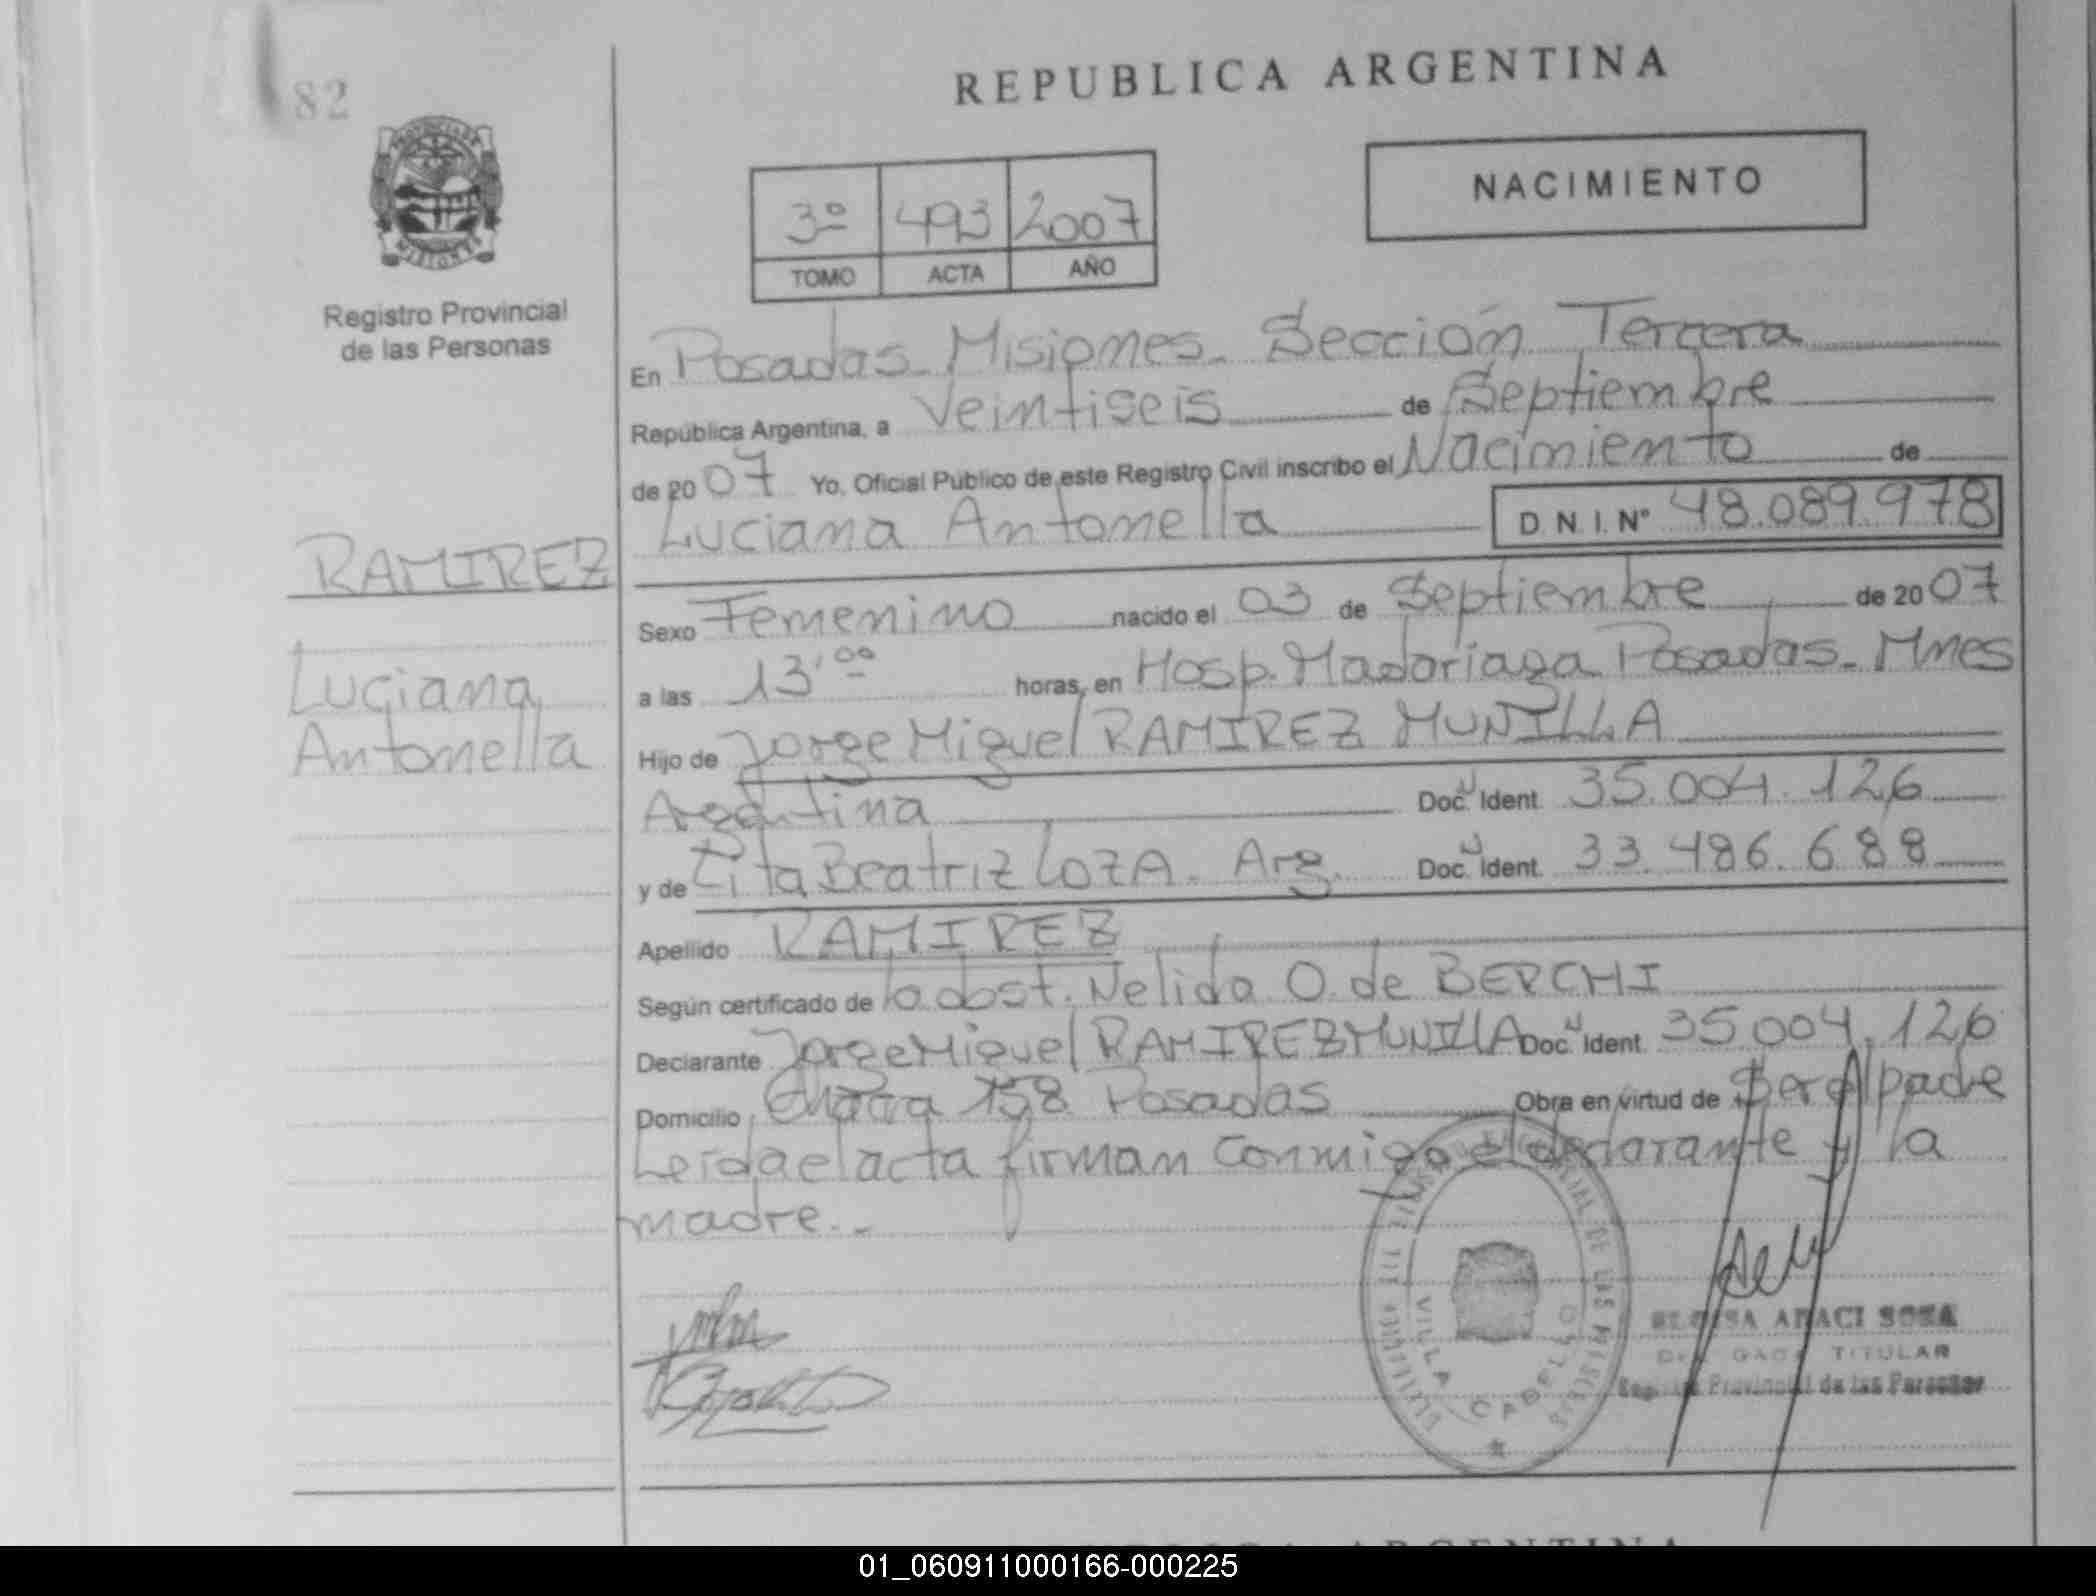 82
REPUBLICA ARGENTINA
NACIMIENTO
3º 493 2007
TOMO ACTA AÑO
PROVINCIA DE
MISIONES
Registro Provincial
de las Personas
En Posadas Misiones. Sección Tercera
República Argentina, a Veintiseis de Septiembre
de 2007 Yo, Oficial Público de este Registro Civil inscribo el Nacimiento de
Luciana Antonella D.N.I.Nº 48.089.978
RAMIREZ
Luciana
Antonella
Sexo Femenino nacido el 03 de Septiembre de 2007
a las 13'00 horas, en Hosp. Madariaga Posadas. Mnes
Hijo de Jorge Miguel RAMIREZ MUNILLA
Argentina Doc. Ident. 35.004.126
y de Beatriz LOZA. Arg. Doc. Ident. 33.486.688
Apellido RAMIREZ
Según certificado de la obst. Nelida O. de BERCHI
Declarante Jorge Miguel RAMIREZ MUNILLA Doc. Ident. 35.004.126
Domicilio Chacra 158 Posadas Obra en virtud de Ser el padre
Leída el acta firman conmigo el declarante y la
madre.-
VILLA CABELLO
ARACI SOSA
TITULAR
Provincial de las Personas
REPUBLICA ARGENTINA
01_060911000166-000225